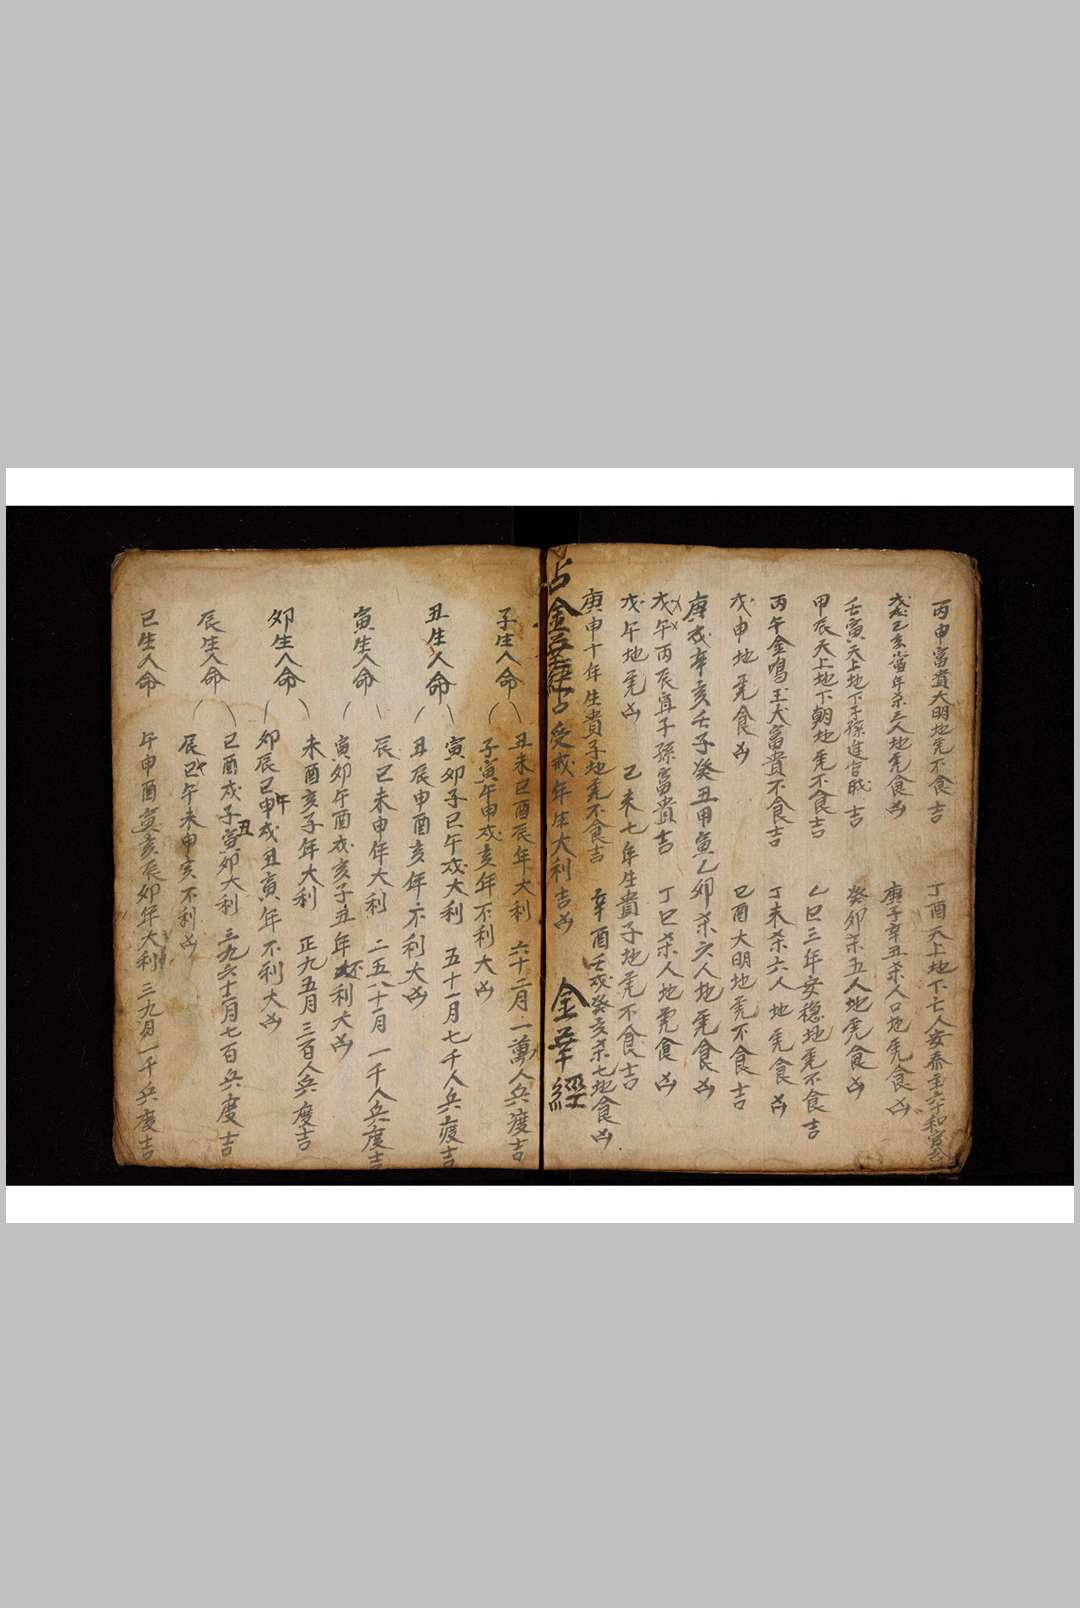 丙申富貴大明地虎不食吉 丁酉天上地下亡人安泰至六十和富吉
戊戌己亥當年杀三人地虎食凶 庚子辛丑杀人口地虎食凶
壬寅天上地下子孫進官职吉 癸卯杀五人地虎食凶
甲辰天上地下朝地虎不食吉 乙巳三年安稳地虎不食吉
丙午金鳴玉犬富貴不食吉 丁未杀六人地虎食凶
戊申地虎食凶 己酉大明地虎不食吉
庚戌辛亥壬子癸丑甲寅乙卯杀六人地虎食凶
戊午丙辰宜子孫富貴吉 丁巳杀人地虎食凶
戊午地虎凶 己未七年生貴子地虎不食吉
庚申十年生貴子地虎不食吉 辛酉壬戌癸亥杀七地食凶
占金華經占受戒年生大利吉凶 金華經
子生人命 丑未巳酉辰年大利 六十二月一萬人兵度吉
子寅午申戌亥年不利大凶
丑生人命 寅卯子巳午戌大利 五十一月七千人兵度吉
丑辰申酉亥年不利大凶
寅生人命 辰巳未申年大利 二五八十月一千人兵度吉
寅卯午酉戌亥子丑年不利大凶
卯生人命 未酉亥子年大利 正九五月三百人兵度吉
卯辰巳午申戌丑寅年不利大凶
辰生人命 己酉戌子丑寅卯大利 三九六十二月七百兵度吉
辰巳午未申亥不利凶
巳生人命 午申酉寅亥辰卯年大利 三九月一千兵度吉